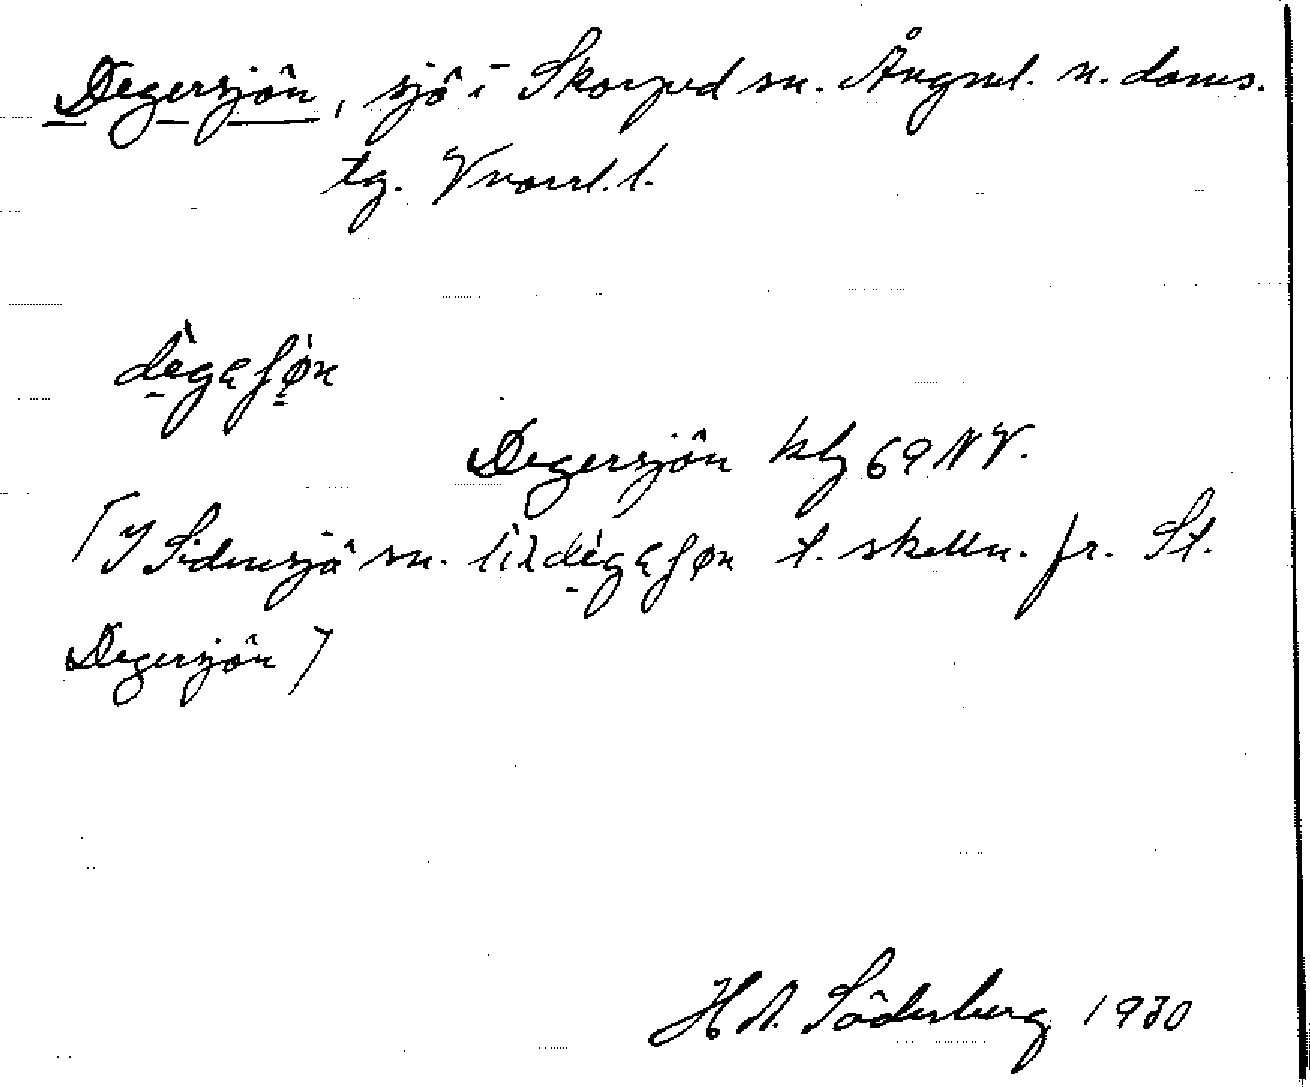 Degersjön, sjö i Skorped sn. Ångml. n. doms.
tg. Vnorrl. l.
dègaʃø̀n
Degersjön kbl 69 NV.
[I Sidensjö sn. lìldègaʃøn t. skilln. fr. St.
Degersjön]
H N. Söderberg 1930